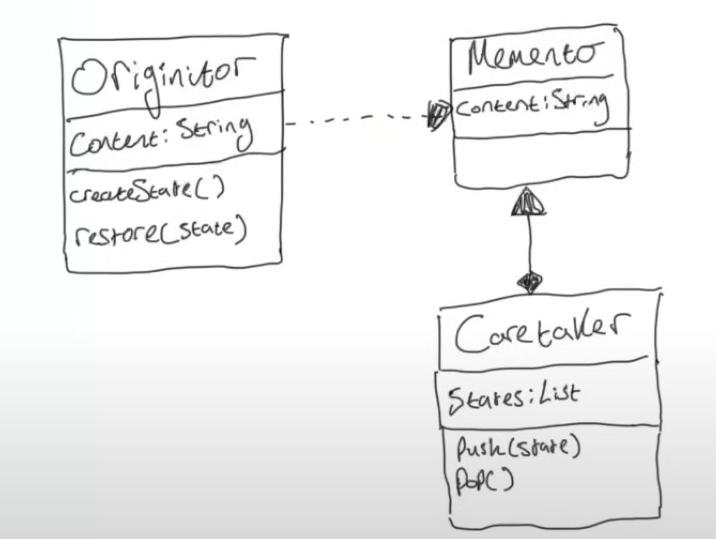 Originitor
Content: String
createState()
restore(state)
Memento
Content: String
Caretaker
States: List
push(state)
pop()